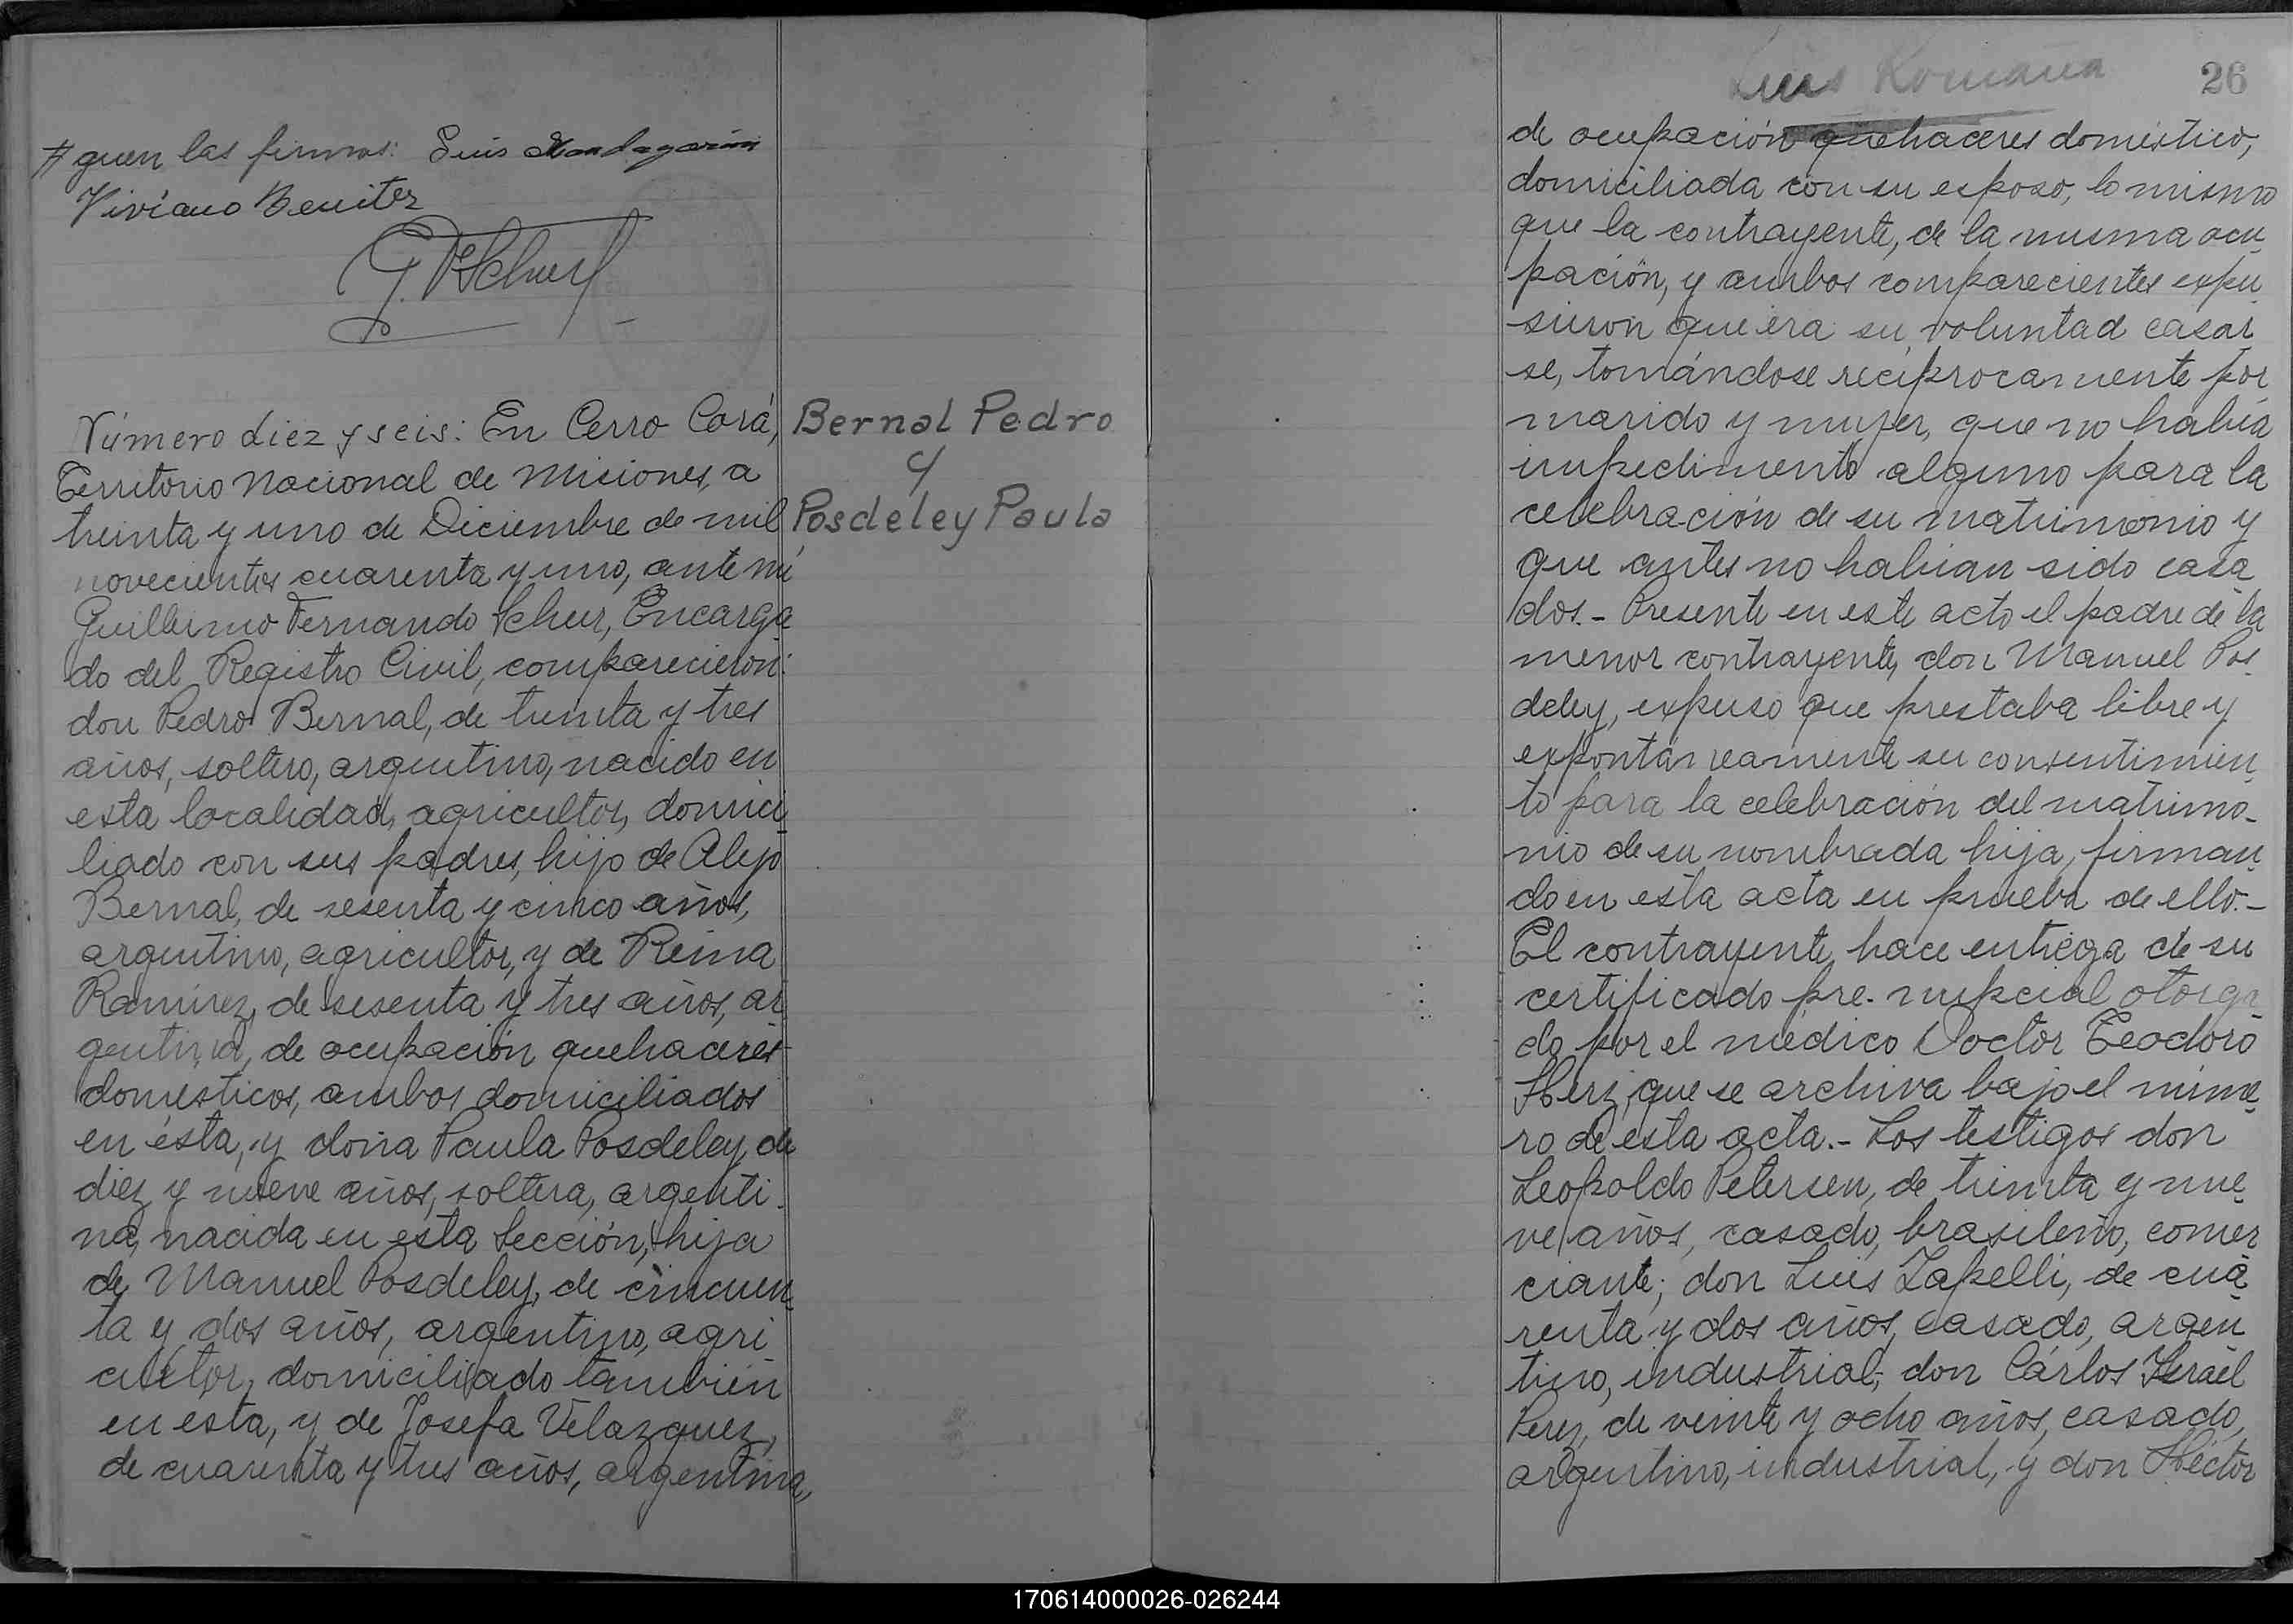 guen las firmas: Luis Mondagarin
Viviano Benitez
G. F. Schur
Número diez y seis: En Cerro Corá,
Territorio Nacional de Misiones, a
treinta y uno de Diciembre de mil
novecientos cuarenta y uno, ante mi
Guillermo Fernando Schur, Encarga
do del Registro Civil, comparecieron:
don Pedro Bernal, de treinta y tres
años, soltero, argentino, nacido en
esta localidad, agricultor, domici
liado con sus padres, hijo de Alejo
Bernal, de sesenta y cinco años,
argentino, agricultor, y de Reina
Ramirez, de sesenta y tres años, ar
gentina, de ocupación quehaceres
domésticos, ambos domiciliados
en ésta, y doña Paula Posdeley, de
diez y nueve años, soltera, argenti
na, nacida en esta Sección, hija
de Manuel Posdeley, de cincuen
ta y dos años, argentino, agri
cultor, domiciliado también
en esta, y de Josefa Velazquez,
de cuarenta y tres años, argentina,
Bernal Pedro
y
Posdeley Paula
Luis Romaña
26
de ocupación quehaceres domésticos,
domiciliada con su esposo, lo mismo
que la contrayente, de la misma ocu
pación, y ambos comparecientes expu
sieron que era su voluntad casar
se, tomándose reciprocamente por
marido y mujer, que no había
impedimento alguno para la
celebración de su matrimonio y
que antes no habian sido casa
dos.- Presente en este acto el padre de la
menor contrayente, don Manuel Pos
deley, expuso que prestaba libre y
expontáneamente su consentimien
to para la celebración del matrimo-
nio de su nombrada hija, firman
do en esta acta en prueba de ello.-
El contrayente hace entrega de su
certificado pre-nupcial otorga
do por el médico Doctor Teodoro
Herz, que se archiva bajo el núme
ro de esta acta.- Los testigos don
Leopoldo Petersen, de treinta y nue
ve años, casado, brasileño, comer
ciante; don Luis Zapelli, de cua
renta y dos años, casado, argen
tino, industrial; don Cárlos Israel
Perez, de veinte y ocho años, casado,
argentino, industrial, y don Héctor
170614000026-026244